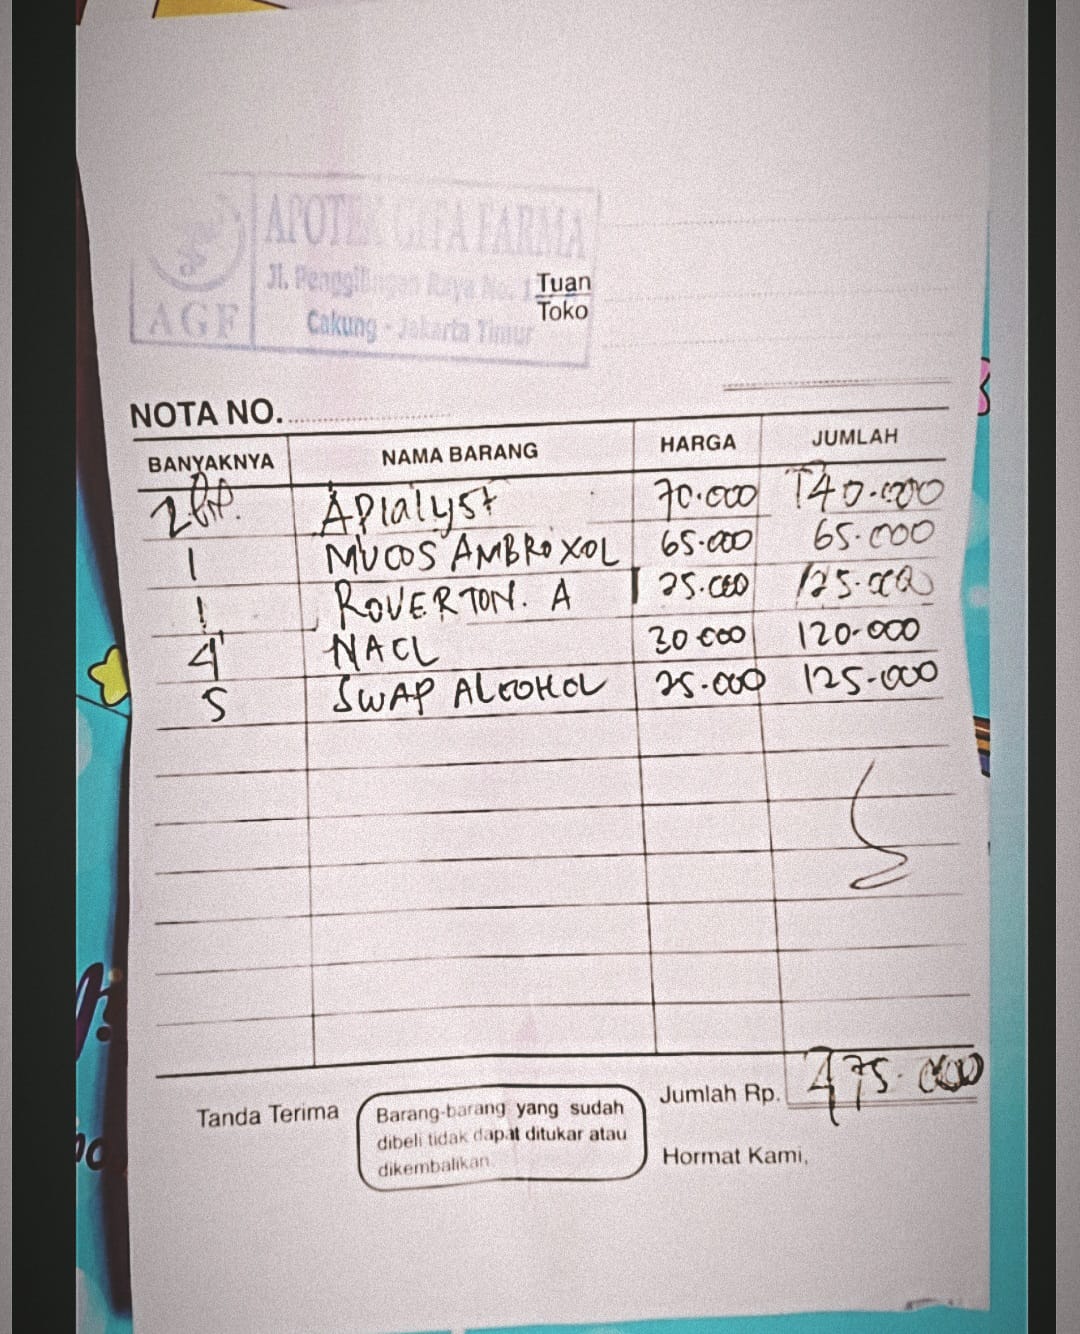 APOTEK GITA FARMA
Jl. Penggilingan Raya No.
Cakung - Jakarta Timur
AGF
Tuan
Toko
NOTA NO.
BANYAKNYA NAMA BARANG HARGA JUMLAH
2 Apialyst 70.000 140.000
1 MUCOS AMBROXOL 65.000 65.000
1 ROVERTON. A 25.000 125.000
4 NACL 30 000 120.000
5 SWAP ALCOHOL 25.000 125.000
Jumlah Rp. 475.000
Tanda Terima
Barang-barang yang sudah
dibeli tidak dapat ditukar atau
dikembalikan
Hormat Kami,